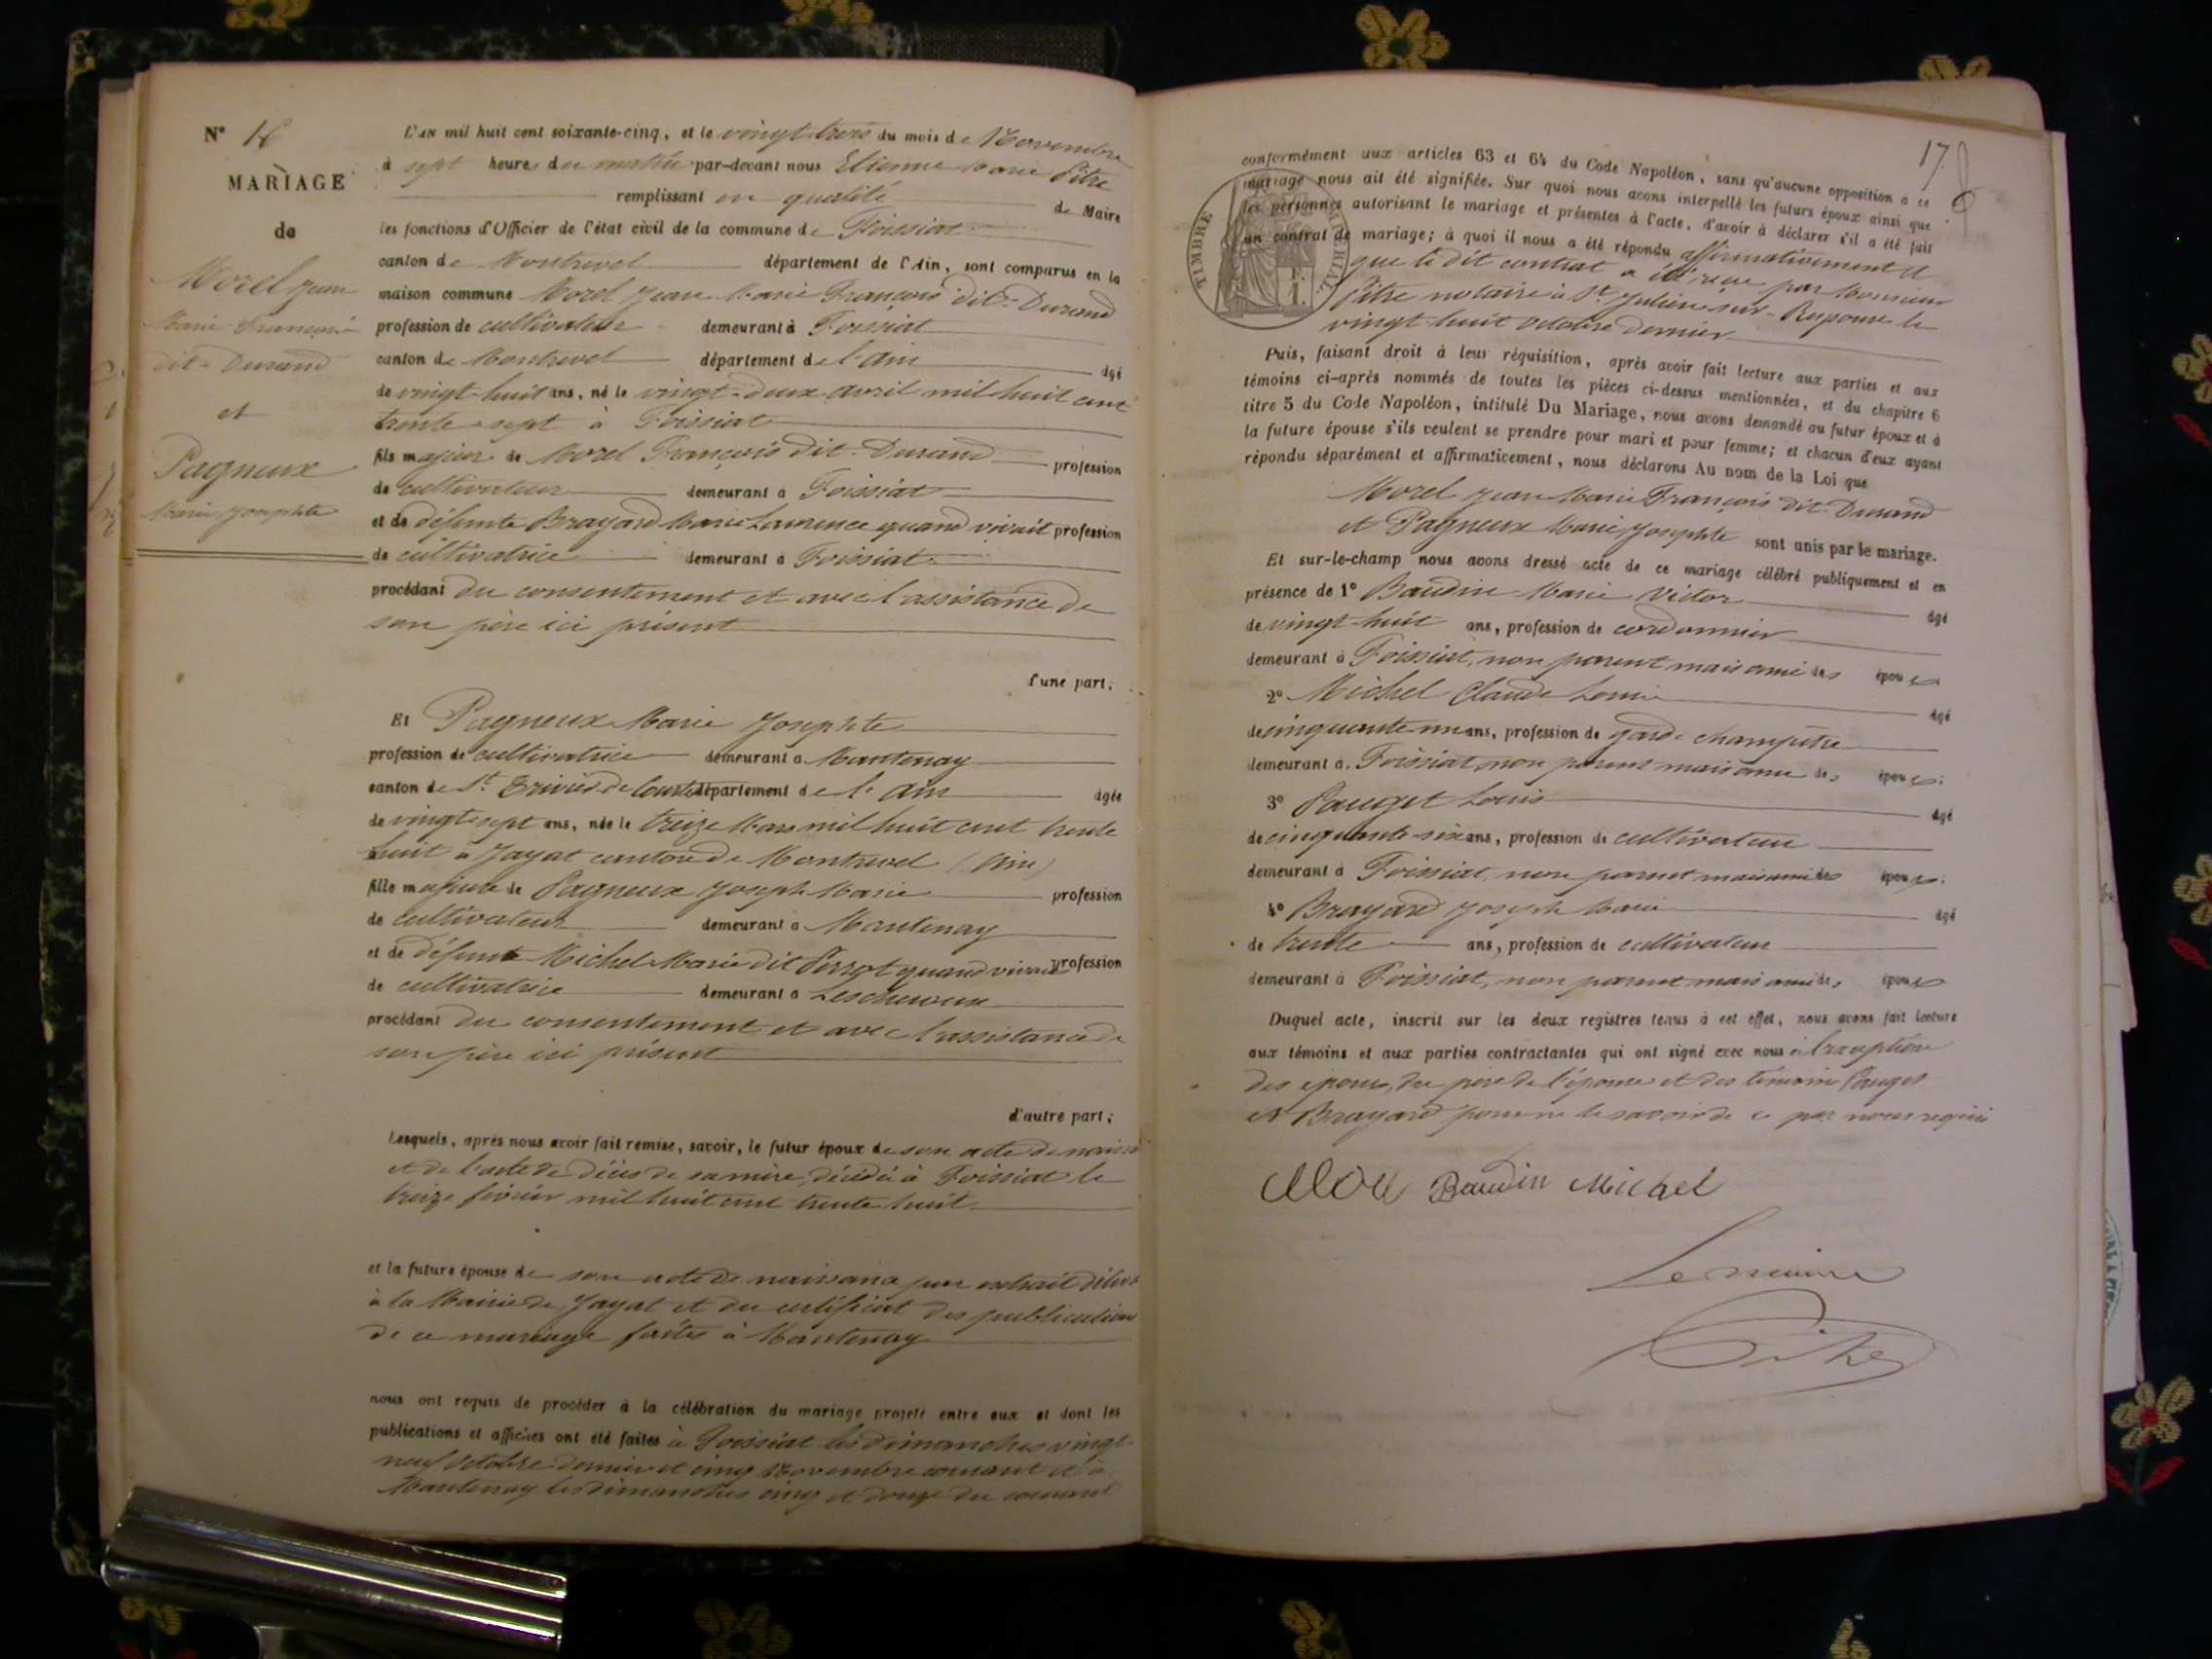 N° 16
MARIAGE
de
Morel Jean
Marie François
dit-Durand
et
Pagneux
Marie Josephte
L'AN mil huit cent soixante-cinq, et le vingt-trois du mois de Novembre
à sept heures du matin par-devant nous Etienne Marie Pitre
remplissant en qualité de Maire
les fonctions d'Officier de l'état civil de la commune de Foissiat
canton de Montrevel département de l'Ain, sont comparus en la
maison commune Morel Jean Marie François dit-Durand
profession de cultivateur demeurant à Foissiat
canton de Montrevel département de l'Ain âgé
de vingt-huit ans, né le vingt-deux avril mil huit cent
trente-sept à Foissiat
fils majeur de Morel François dit-Durand profession
de cultivateur demeurant à Foissiat
et de défunte Brayard Marie Laurence quand vivait profession
de cultivatrice demeurant à Foissiat
procédant du consentement et avec l'assistance de
son père ici présent
d'une part;
Et Pagneux Marie Josephte
profession de cultivatrice demeurant à Mantenay
canton de St Trivier de Courtes département de l'Ain âgée
de vingt-sept ans, née le treize Mars mil huit cent trente
huit à Jayat canton de Montrevel (Ain)
fille majeure de Pagneux Joseph Marie profession
de cultivateur demeurant à Mantenay
et de défunte Michel Marie dit Perrot quand vivait profession
de cultivatrice demeurant à Lescheroux
procédant du consentement et avec l'assistance de
son père ici présent
d'autre part;
Lesquels, après nous avoir fait remise, savoir, le futur époux de son acte de naiss
et de l'acte de décès de sa mère, décédée à Foissiat le
treize février mil huit cent trente huit
et la future épouse de son acte de naissance par extrait délivré
à la Mairie de Jayat et du certificat des publications
de ce mariage faites à Mantenay
nous ont requis de procéder à la célébration du mariage projeté entre eux et dont les
publications et affiches ont été faites à Foissiat les dimanches vingt
neuf Octobre dernier et cinq Novembre courant et à
Mantenay les dimanches cinq et douze du courant
17
conformément aux articles 63 et 64 du Code Napoléon, sans qu'aucune opposition à ce
mariage nous ait été signifiée. Sur quoi nous avons interpellé les futurs époux ainsi que
les personnes autorisant le mariage et présentes à l'acte, d'avoir à déclarer s'il a été fait
un contrat de mariage; à quoi il nous a été répondu affirmativement et
que le dit contrat a été reçu par Monsieur
Pitre notaire à St Julien-sur-Reyssouze le
vingt-huit Octobre dernier
TIMBRE IMPÉRIAL
Puis, faisant droit à leur réquisition, après avoir fait lecture aux parties et aux
témoins ci-après nommés de toutes les pièces ci-dessus mentionnées, et du chapitre 6
titre 5 du Code Napoléon, intitulé Du Mariage, nous avons demandé au futur époux et à
la future épouse s'ils veulent se prendre pour mari et pour femme; et chacun d'eux ayant
répondu séparément et affirmativement, nous déclarons Au nom de la Loi que
Morel Jean Marie François dit-Durand
et Pagneux Marie Josephte sont unis par le mariage.
Et sur-le-champ nous avons dressé acte de ce mariage célébré publiquement et en
présence de 1° Baudin Marie Victor âgé
de vingt-huit ans, profession de cordonnier
demeurant à Foissiat, non parent mais ami des époux
2° Michel Claude Louis âgé
de cinquante-un ans, profession de garde champêtre
demeurant à Foissiat, non parent mais ami des époux;
3° Pauget Louis âgé
de cinquante-six ans, profession de cultivateur
demeurant à Foissiat, non parent mais ami des époux;
4° Brayard Joseph Marie âgé
de trente ans, profession de cultivateur
demeurant à Foissiat, non parent mais ami des époux
Duquel acte, inscrit sur les deux registres tenus à cet effet, nous avons fait lecture
aux témoins et aux parties contractantes qui ont signé avec nous à l'exception
des époux, du père de l'épouse et des témoins Pauget
et Brayard pour ne le savoir de ce par nous requis
Baudin Michel
Le maire
Pitre